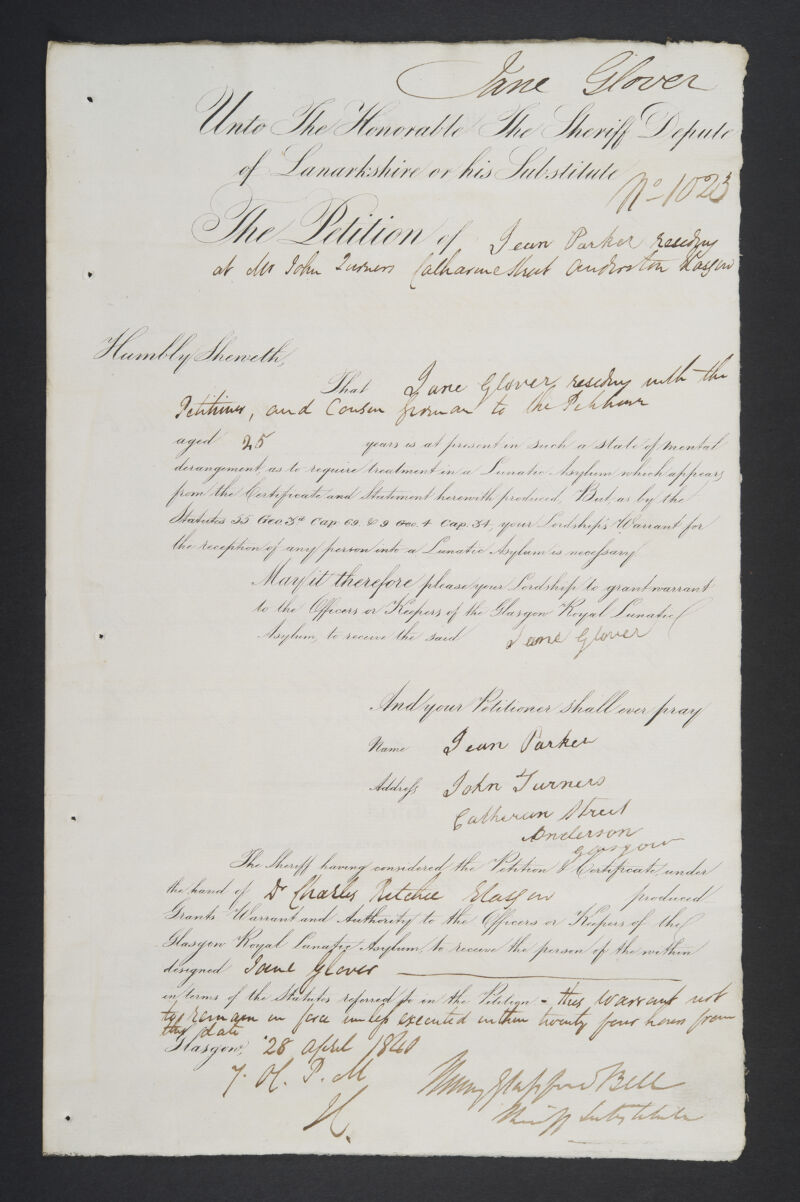 Jane Glover
Unto The Honorable The Sheriff Depute
of Lanarkshire or his Substitute
No 1023
The Petition of Jean Parker residing
at Mr John Turners Catharine Street Anderston Glasgow
Humbly Sheweth,
That Jane Glover, residing with the
Petitioner, and Cousin German to the Petitioner
aged 25 years is at present in such a state of mental
derangement, as to require treatment in a Lunatic Asylum which appears
from the Certificate and Statement herewith produced. But, as by the
Statutes 55 Geo. 3d Cap. 69. & 9 Geo. 4 Cap. 34, your Lordship's Warrant for
the reception of any person into a Lunatic Asylum is necessary
May it therefore please your Lordship to grant warrant
to the Officers or Keepers of the Glasgow Royal Lunatic
Asylum, to receive the said Jane Glover
And your Petitioner shall ever pray
Name Jean Parker
Address John Turners
Catherun Street
Anderson
Glasgow
The Sheriff having considered the Petition & Certificate, under
the hand of Dr Charles Ritchie Glasgow produced
Grants Warrant and Authority to the Officers or Keepers of the
Glasgow Royal Lunatic Asylum, to receive the person of the within
designed Jane Glover
in terms of the Statutes referred to in the Petition - this warrant not
to remain in force unless executed within twenty four hours from
this date
Glasgow, 28 April 1840
7. H. P. M
H.
Henry Glassford Bell
Sheriff Substitute